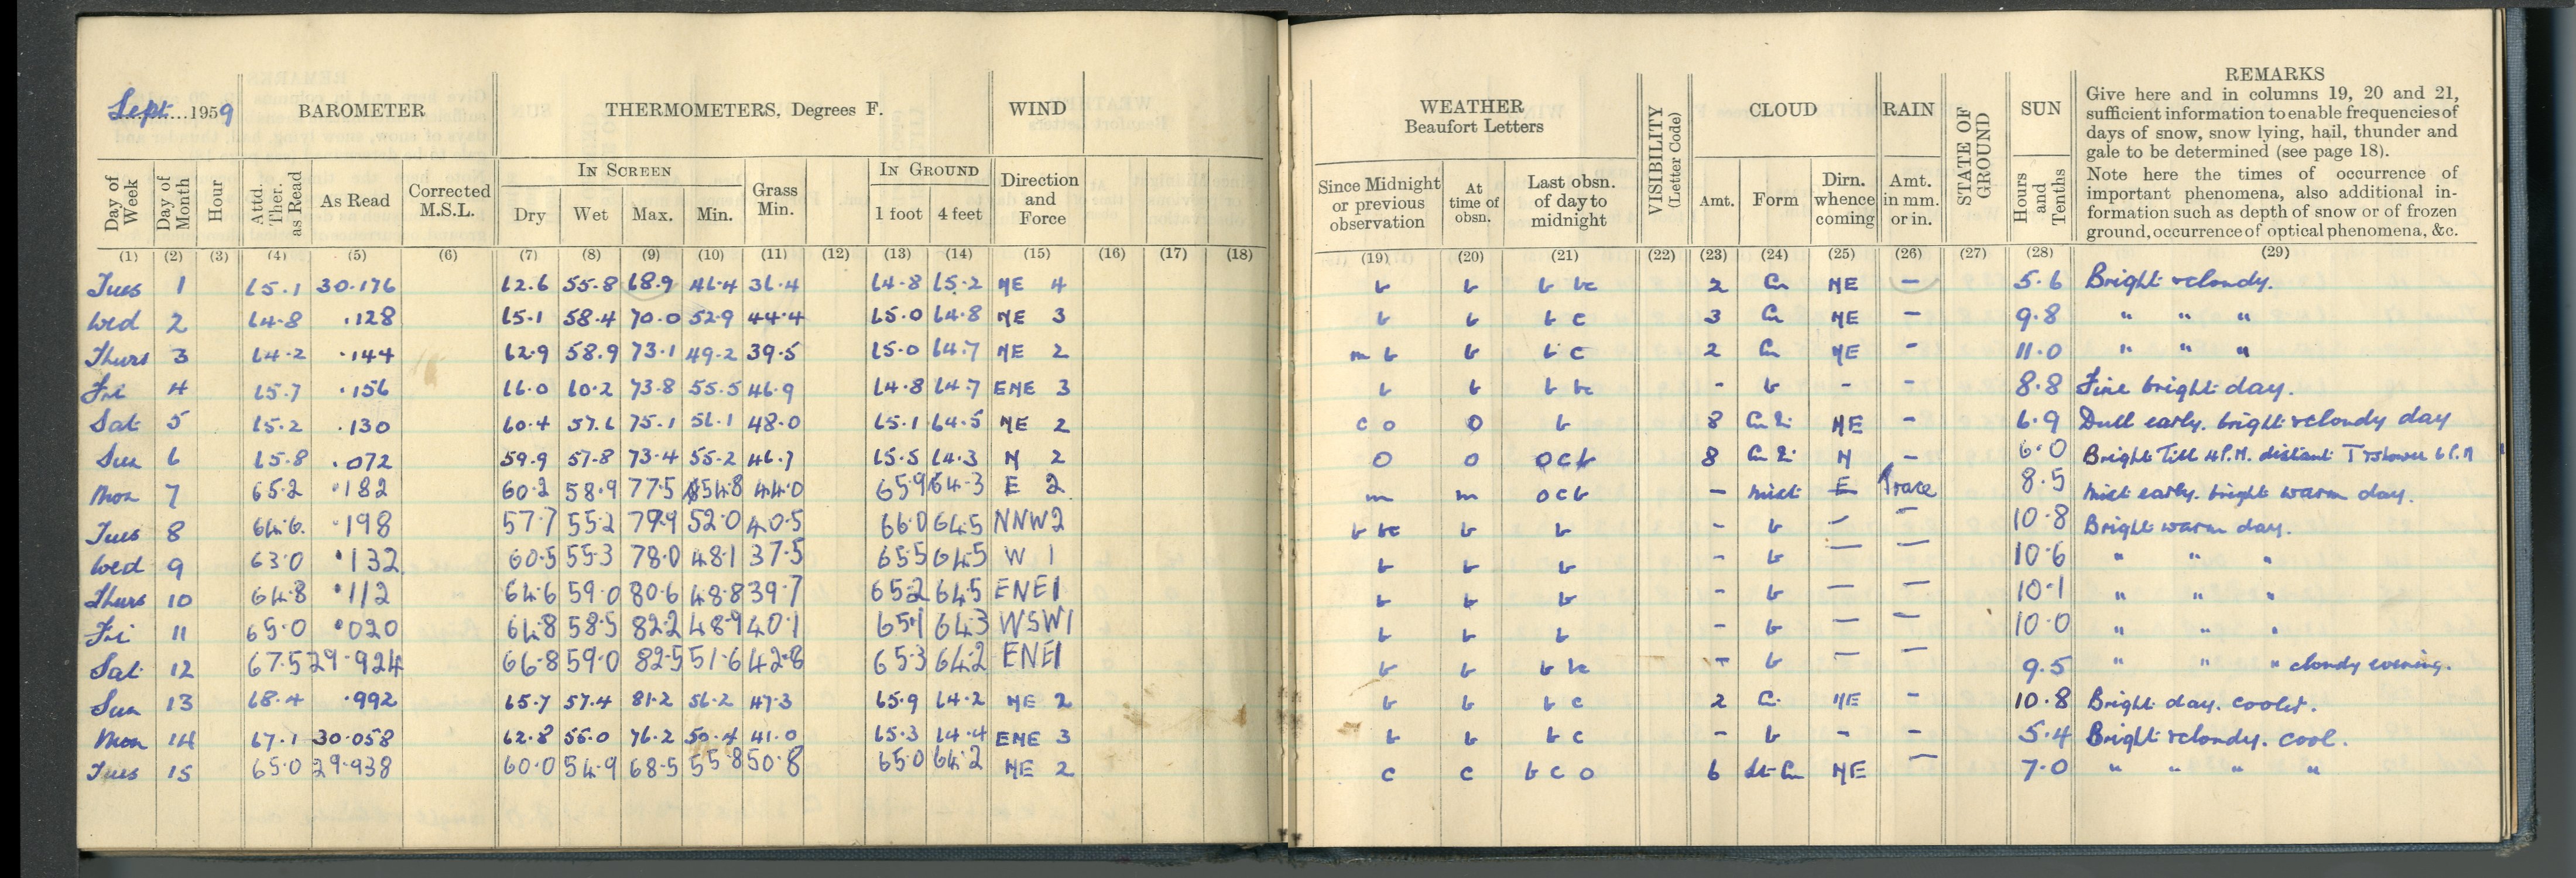 Sept. 1959
BAROMETER
THERMOMETERS, Degrees F.
WIND
Day of Week
Day of Month
Hour
Attd. Ther. as Read
As Read
Corrected M.S.L.
IN SCREEN
Dry Wet Max. Min.
Grass Min.
IN GROUND
1 foot 4 feet
Direction and Force
(1) (2) (3) (4) (5) (6) (7) (8) (9) (10) (11) (12) (13) (14) (15) (16) (17) (18)
Tues 1 65.1 30.176 62.6 55.8 68.9 46.4 36.4 64.8 65.2 NE 4
Wed 2 64.8 .128 65.1 58.4 70.0 52.9 44.4 65.0 64.8 NE 3
Thurs 3 64.2 .144 62.9 58.9 73.1 49.2 39.5 65.0 64.7 NE 2
Fri 4 65.7 .156 66.0 60.2 73.8 55.5 46.9 64.8 64.7 ENE 3
Sat 5 65.2 .130 60.4 57.6 75.1 56.1 48.0 65.1 64.5 NE 2
Sun 6 65.8 .072 59.9 57.8 73.4 55.2 46.7 65.5 64.3 N 2
Mon 7 65.2 .182 60.2 58.9 77.5 54.8 44.0 65.9 64.3 E 2
Tues 8 64.6 .198 57.7 55.2 79.9 52.0 40.5 66.0 64.5 NNW 2
Wed 9 63.0 .132 60.5 55.3 78.0 48.1 37.5 65.5 64.5 W 1
Thurs 10 64.8 .112 64.6 59.0 80.6 48.8 39.7 65.2 64.5 ENE 1
Fri 11 65.0 .020 64.8 58.5 82.2 48.9 40.1 65.1 64.3 WSW 1
Sat 12 67.5 29.924 66.8 59.0 82.5 51.6 42.8 65.3 64.2 ENE 1
Sun 13 68.4 .992 65.7 57.4 81.2 56.2 47.3 65.9 64.2 NE 2
Mon 14 67.1 30.058 62.8 56.0 76.2 50.4 41.0 65.3 64.4 ENE 3
Tues 15 65.0 29.938 60.0 54.9 68.5 55.8 50.8 65.0 64.2 NE 2
WEATHER
Beaufort Letters
Since Midnight or previous observation
At time of obsn.
Last obsn. of day to midnight
VISIBILITY (Letter Code)
CLOUD
Amt. Form
Dirn. whence coming
RAIN
Amt. in mm. or in.
STATE OF GROUND
SUN
Hours and Tenths
REMARKS
Give here and in columns 19, 20 and 21,
sufficient information to enable frequencies of
days of snow, snow lying, hail, thunder and
gale to be determined (see page 18).
Note here the times of occurrence of
important phenomena, also additional in-
formation such as depth of snow or of frozen
ground, occurrence of optical phenomena, &c.
(19) (20) (21) (22) (23) (24) (25) (26) (27) (28) (29)
b b b bc 2 Cu NE - 5.6 Bright & cloudy.
b b b c 3 Cu NE - 9.8 " " "
m b b b c 2 Cu NE - 11.0 " " "
b b b bc - b - - 8.8 Fine bright day.
c o o b 8 NE - 6.9 Dull early. bright & cloudy day
o o o c b 8 N - 6.0 Bright till 4 P.M. distant T & shower 6 P.M
m m o c b - mist E Trace 8.5 mist early. bright warm day.
b bc b b - b - - 10.8 Bright warm day.
b b b - b - - 10.6 " " "
b b b - b - - 10.1 " " "
b b b - b - - 10.0 " " "
b b b bc - b - - 9.5 " " " cloudy evening.
b b b c 2 NE - 10.8 Bright day. cooler.
b b b c - b - - 5.4 Bright & cloudy. cool.
c c b c o 6 St-Cu NE - 7.0 " " " "